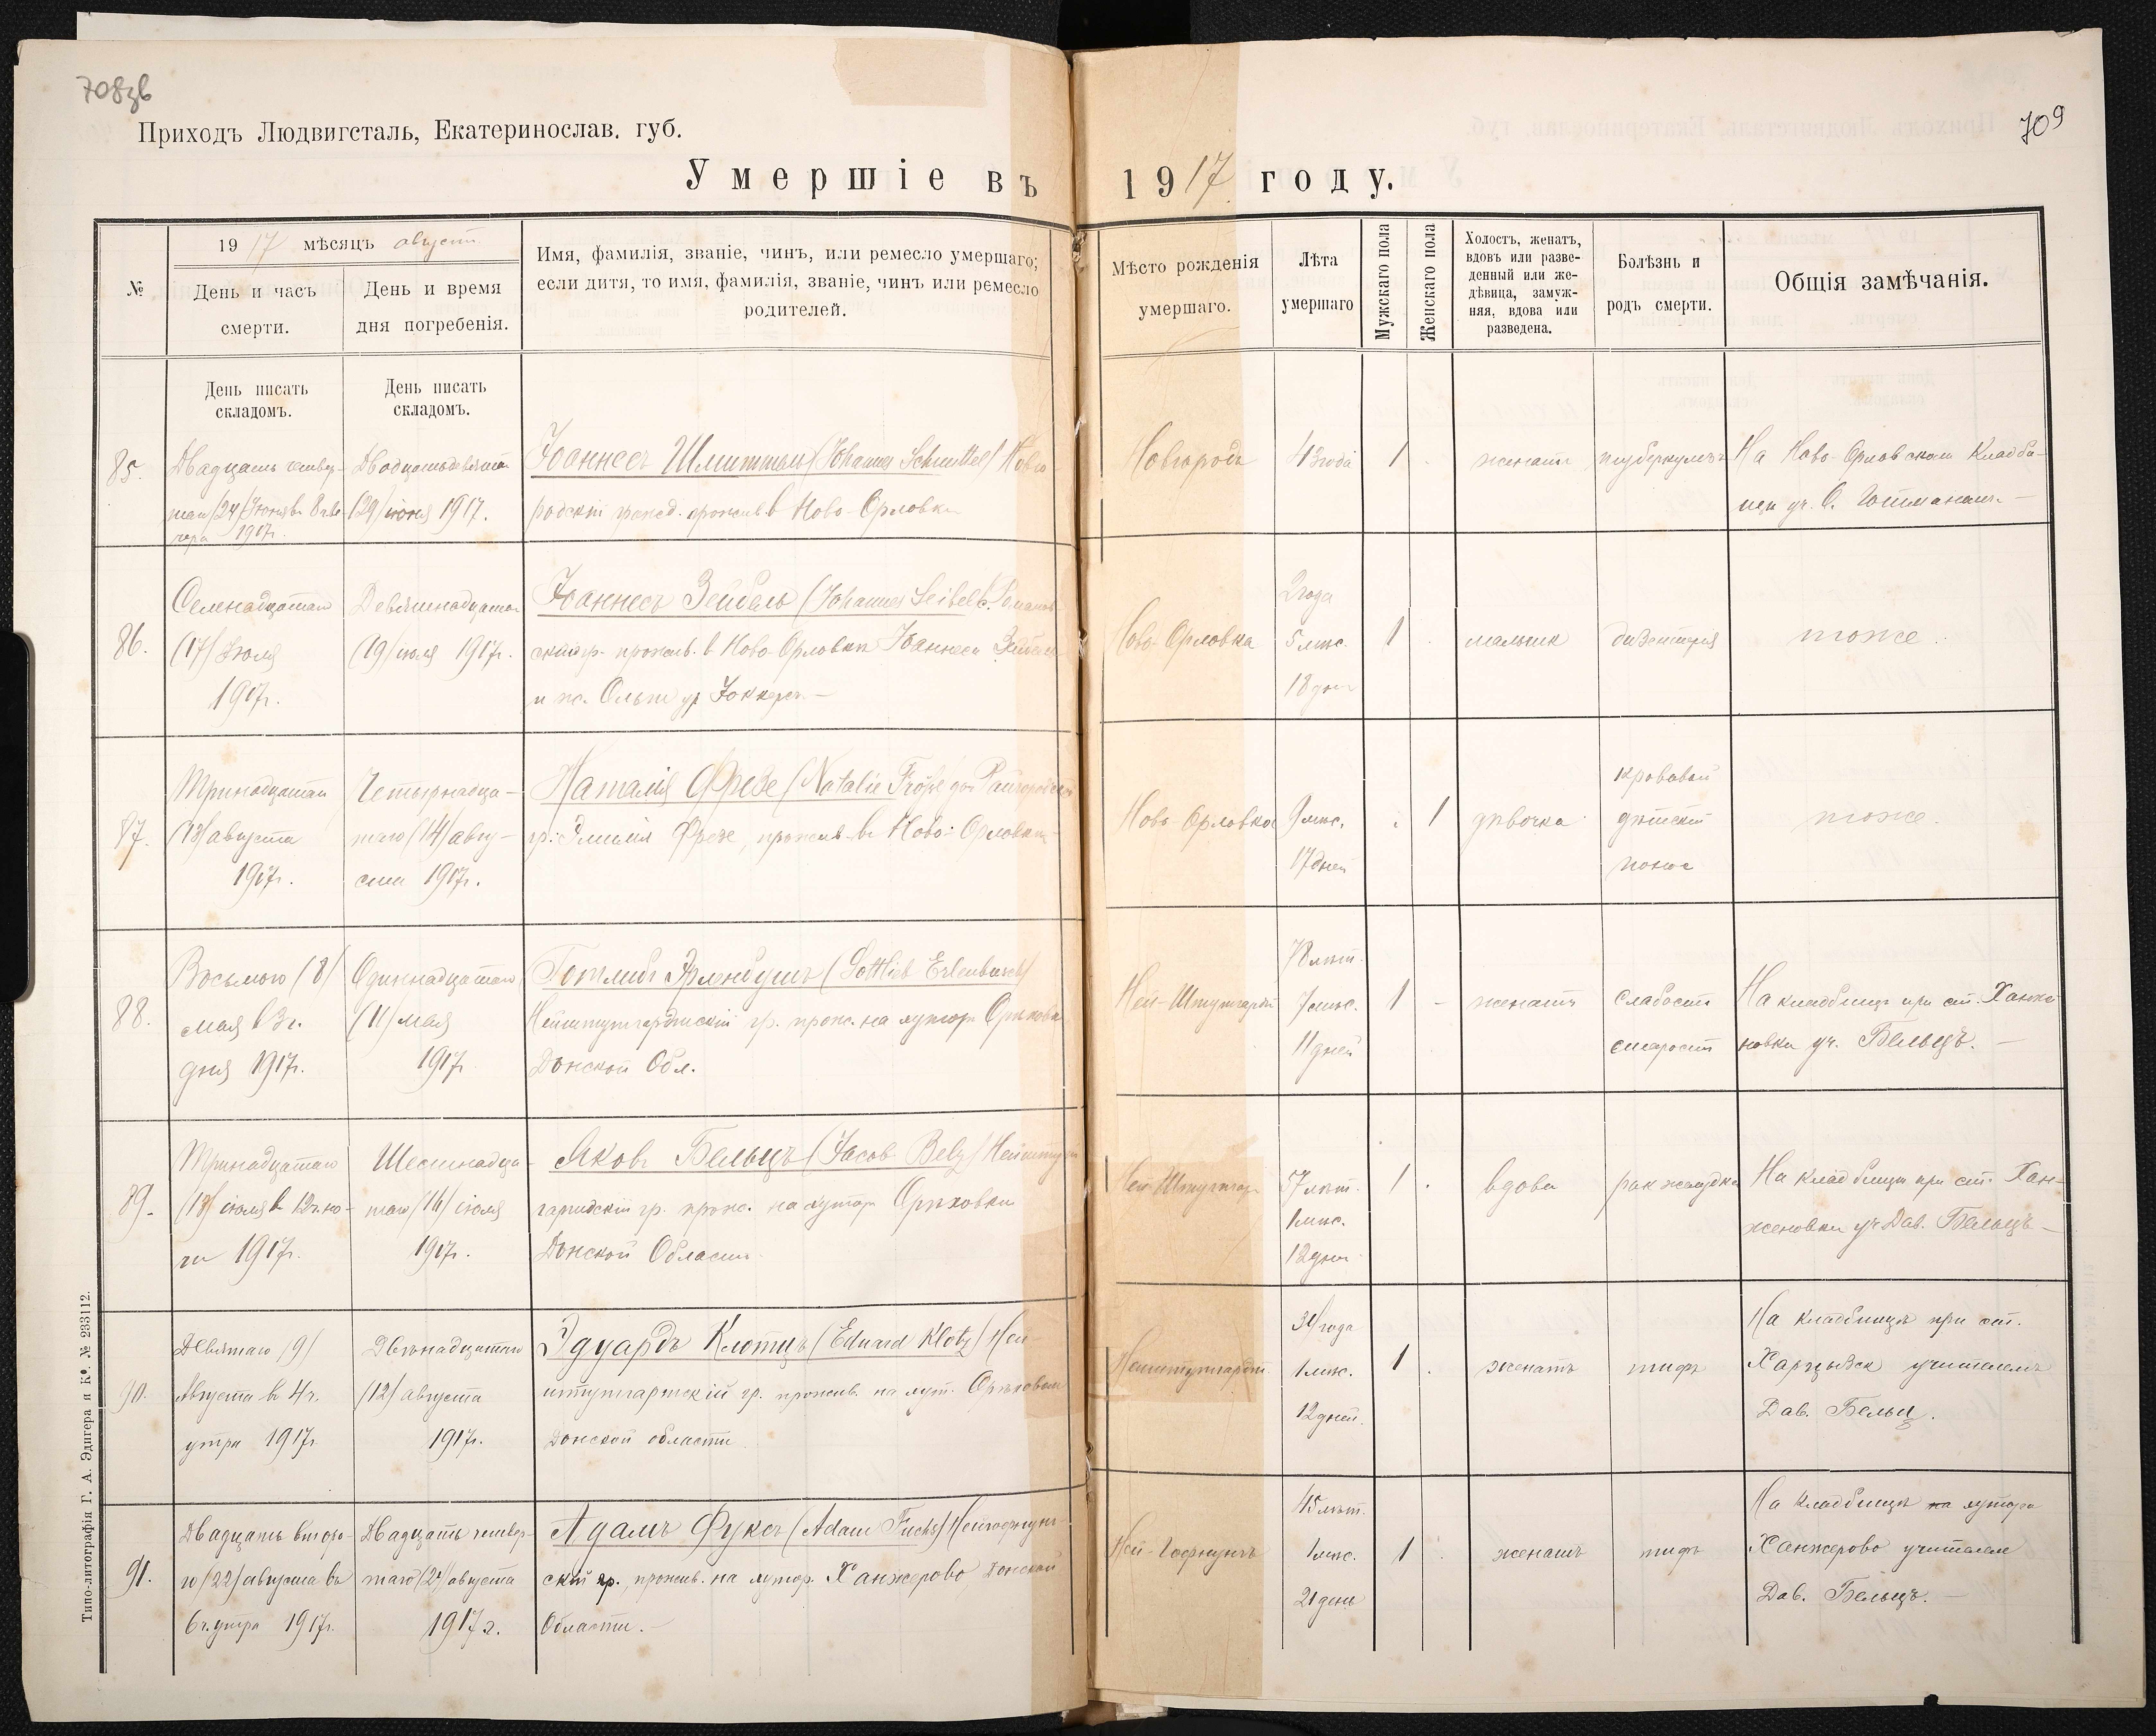 708зв
709
Приходъ Людвигсталь, Екатеринослав. губ.
Умершіе въ 1917 году.
№
1917 мѣсяцъ август
День и часъ
смерти.
День и время
дня погребенія.
Имя, фамилія, званіе, чинъ, или ремесло умершаго;
если дитя, то имя, фамилія, званіе, чинъ или ремесло
родителей.
Мѣсто рожденія
умершаго.
Лѣта
умершаго
Мужскаго пола
Женскаго пола
Холостъ, женатъ,
вдовъ или разве-
денный или же-
дѣвица, замуж-
няя, вдова или
разведена.
Болѣзнь и
родъ смерти.
Общія замѣчанія.
День писать
складомъ.
День писать
складомъ.
85.
Двадцать четвер-
таго (24) Іюня в 8 ч ве-
чера 1917г.
(29) іюня 1917.
Іоаннесъ (Johannes Schmittel) Новго-
родскій прожив. в Ново-Орловкѣ
Новгородъ
43 года
1
женатъ
туберкулезъ
На Ново-Орловском кладби-
щѣ уч. О. Гутманомъ. —
86.
Семнадцатаго
(17) Іюля
1917г.
Девятнадцатаго
(19) іюля 1917г.
Іоаннесъ Зейбель (Johannes Seibel)
прожив. в Ново-Орловкѣ Іоаннеса Зейбель
и ж. Ольги ур. —
Ново-Орловка
2 года
5 мѣс.
18 дн.
1
мальчик
дизентерія
тоже.
87.
Тринадцатаго
(13) августа
1917г.
Четырнадца-
таго (14) авгу-
ста 1917г.
Наталія Фрезе (Natalie
гр. Эмилія Фрезе, прожив. въ Ново-Орловкѣ
Ново-Орловка
9 мѣс.
17 дней
1
дѣвочка
кровавый
дѣтскій
понос
тоже.
88.
Восьмого (8)
мая в 3 ч.
дня 1917г.
Одиннадцатаго
(11) мая
1917г
Готлибъ Эрленбушъ (Gottlieb Erlenbusch)
Нейштутгардтскій гр. прож. на хуторѣ Орѣховкѣ
Донской Обл.
Ней-Штутгардт
78 лѣт.
7 мѣс.
11 дней
1
женатъ
слабость
старость
На кладбищѣ при ст. Ханже-
новка уч. Бельцъ. —
89.
Тринадцатаго
(13) іюля в 12 ч. но-
чи 1917г.
Шестнадца-
таго (16) іюля
1917г.
Яковъ Бельцъ (Jacob Belz) Нейштут-
гартскій гр. прож. на хуторѣ Орѣховкѣ
Донской Области.
Ней-Штутгардт
57 лѣт.
1 мѣс.
12 дней
1
вдова
рак желудка
На кладбищѣ при ст. Хан-
женовка уч. Дав. Бельцъ —
90.
Девятаго (9)
Августа в 4 ч.
утра 1917г
Двѣнадцатаго
(12) августа
1917г.
Эдуардъ Клотцъ (Eduard Klotz) Ней-
штутгартскій гр. прожив. на хут. Орѣховом
Донской области
Нейштутгардт
1 мѣс.
12 дней.
1
женатъ
тифъ
На кладбищѣ при ст.
Харцызск учителемъ
Дав. Бельц.
91.
Двадцать второ-
го (22) августа въ
6 ч. утра 1917г.
Двадцать четвер-
таго (24) августа
1917 г.
Адамъ Фуксъ (Adam Fuchs) Нейгофнунг-
скій гр., прожив. на хутор. Ханжерово Донской
Области. —
Ней-Гофнунгъ
45 лѣт.
1 мѣс.
21 день
1
женатъ
тифъ
На кладбищѣ на хуторѣ
Ханжерово учителем
Дав. Бельцъ. —
Типо-литографія Г. А. Эдигера и Кº. № 233112.